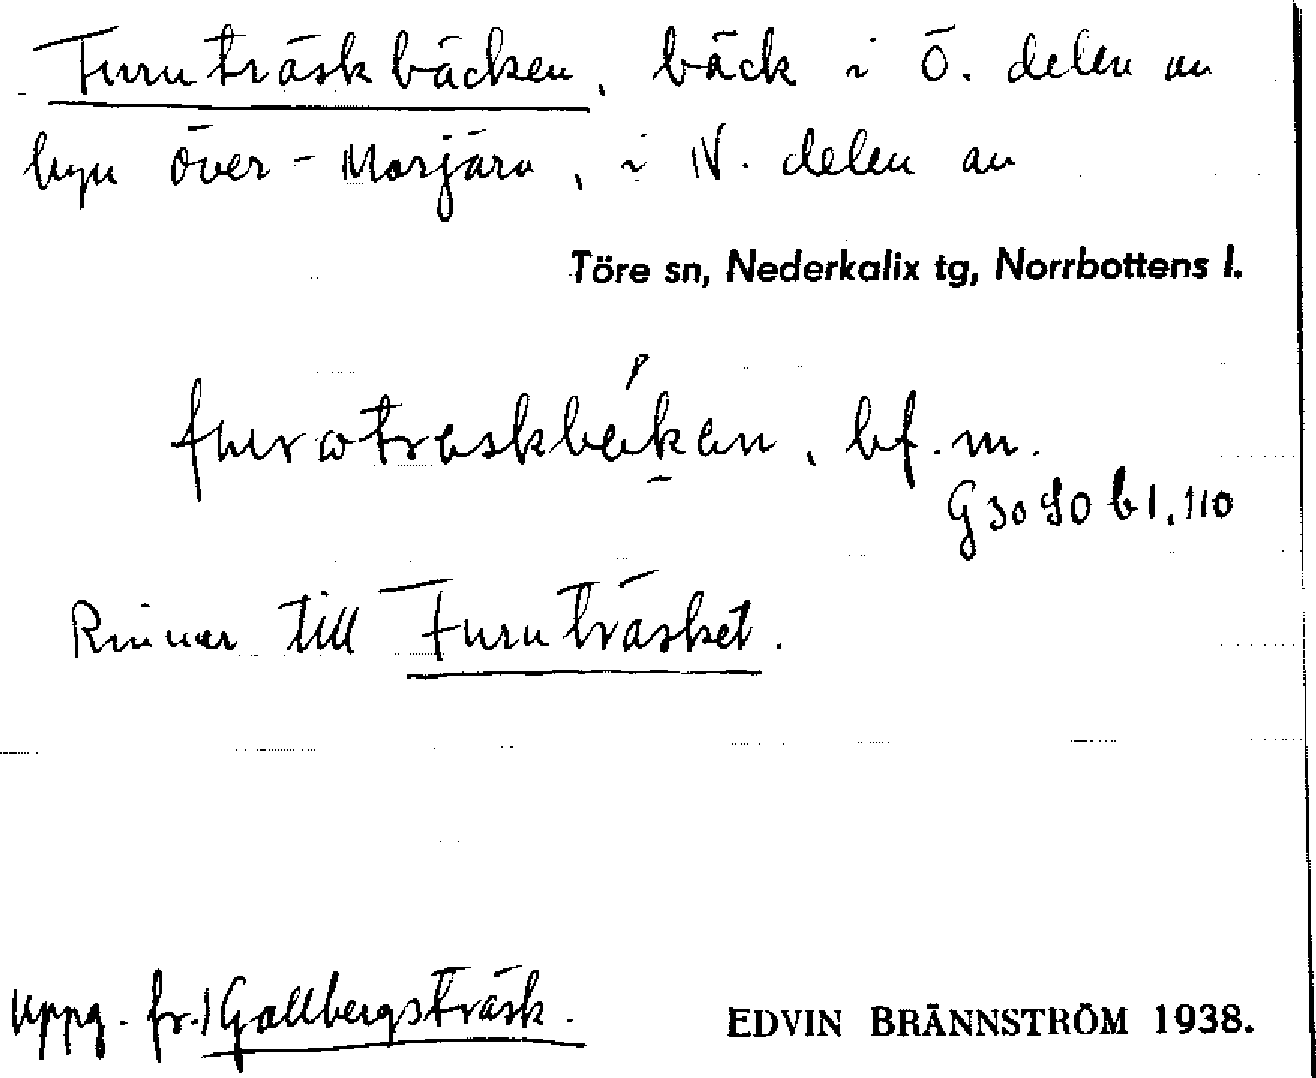 Furuträskbäcken, bäck i Ö. delen av
byn Över-Morjärv, i N. delen av
Töre sn, Nederkalix tg, Norrbottens l.
bf. m.
G 3090 b 1, 110
Rinner till Furuträsket.
Uppg. fr. Gallbergsträsk.
EDVIN BRÄNNSTRÖM 1938.